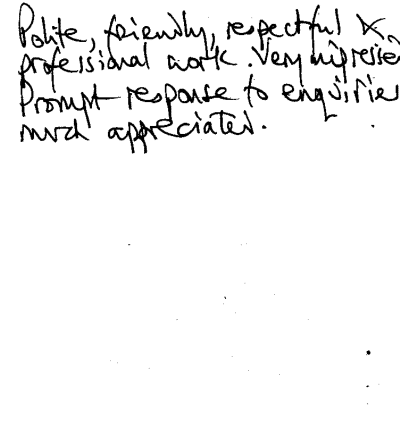 Polite, friendly, respectful &
professional work. Very impresse
Prompt response to enquiries
much appreciated.